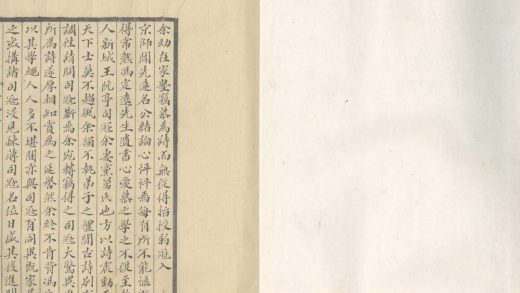 余幼在家塾竊慕為詩而無從得指授弱冠入
京師聞先達名公緒論心怦怦焉每有所不能愜
得常熟馮定遠先生遺書心愛慕之學之不復至
人新城王阮亭司寇余妻黨舅氏也方以詩震動
天下士莫不趨風余獨不執弟子之禮聞古詩別
調往請問司寇靳焉余宛轉竊得之司寇大驚異
所為詩遂厚相知賞為之延譽然余終不肯背馮
以其學繩人人多不堪間亦與司寇有同異既家
之或構諸司寇浸見疎薄司寇名位日盛其後進門